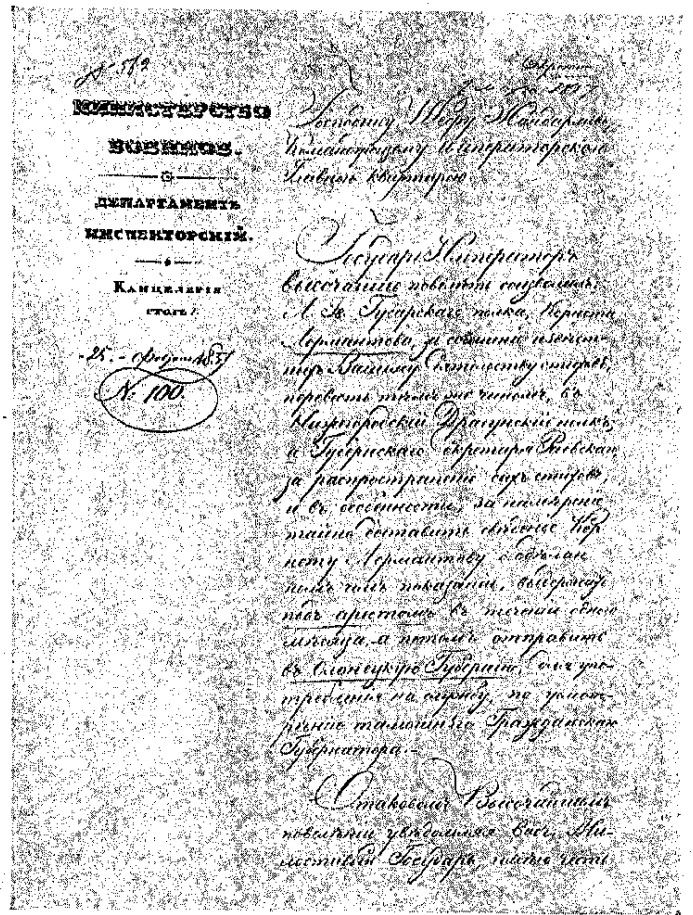 № 583
Секретно
МИНИСТЕРСТВО
ВОЕННОЕ.
ДЕПАРТАМЕНТЪ
ИНСПЕКТОРСКІЙ.
КАНЦЕЛЕРІЯ
столъ 1
25. Февраля 1837
№ 100.
Господину Шефу Жандармовъ,
Командующему Императорскою
Главною Квартирою.
Государь Императоръ
Высочайше повелѣть соизволилъ:
Л. Гв. Гусарскаго полка, Корнета
Лермантова, за сочиненіе извѣст-
ныхъ Вашему Сіятельству стиховъ,
перевесть тѣмъ же чиномъ, въ
Нижегородскій Драгунскій полкъ;
а Губернскаго Секретаря Раевскаго
за распространеніе сихъ стиховъ,
и въ особенности, за намѣреніе
тайно доставить свѣденіе Кор-
нету Лермантову о сдѣлан-
номъ имъ показаніи, выдержать
подъ арестомъ въ теченіи одного
мѣсяца, а потомъ отправить
въ Олонецкую Губернію, для упо-
требленія на службу, по усмот-
рѣнію тамошняго Гражданскаго
Губернатора.-
О таковомъ Высочайшемъ
повелѣніи увѣдомляя Васъ, Ми-
лостивый Государь, имѣю честь